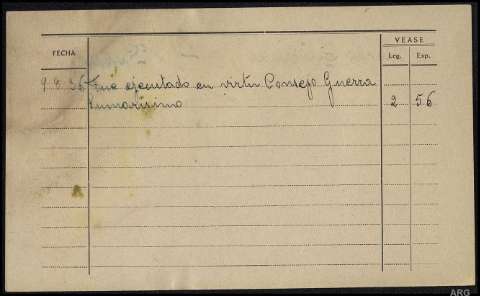 FECHA
VEASE
Leg. Exp.
9.8.36 fue ejecutado en virtu Consejo Guerra
sumarísimo 2 56
ARG